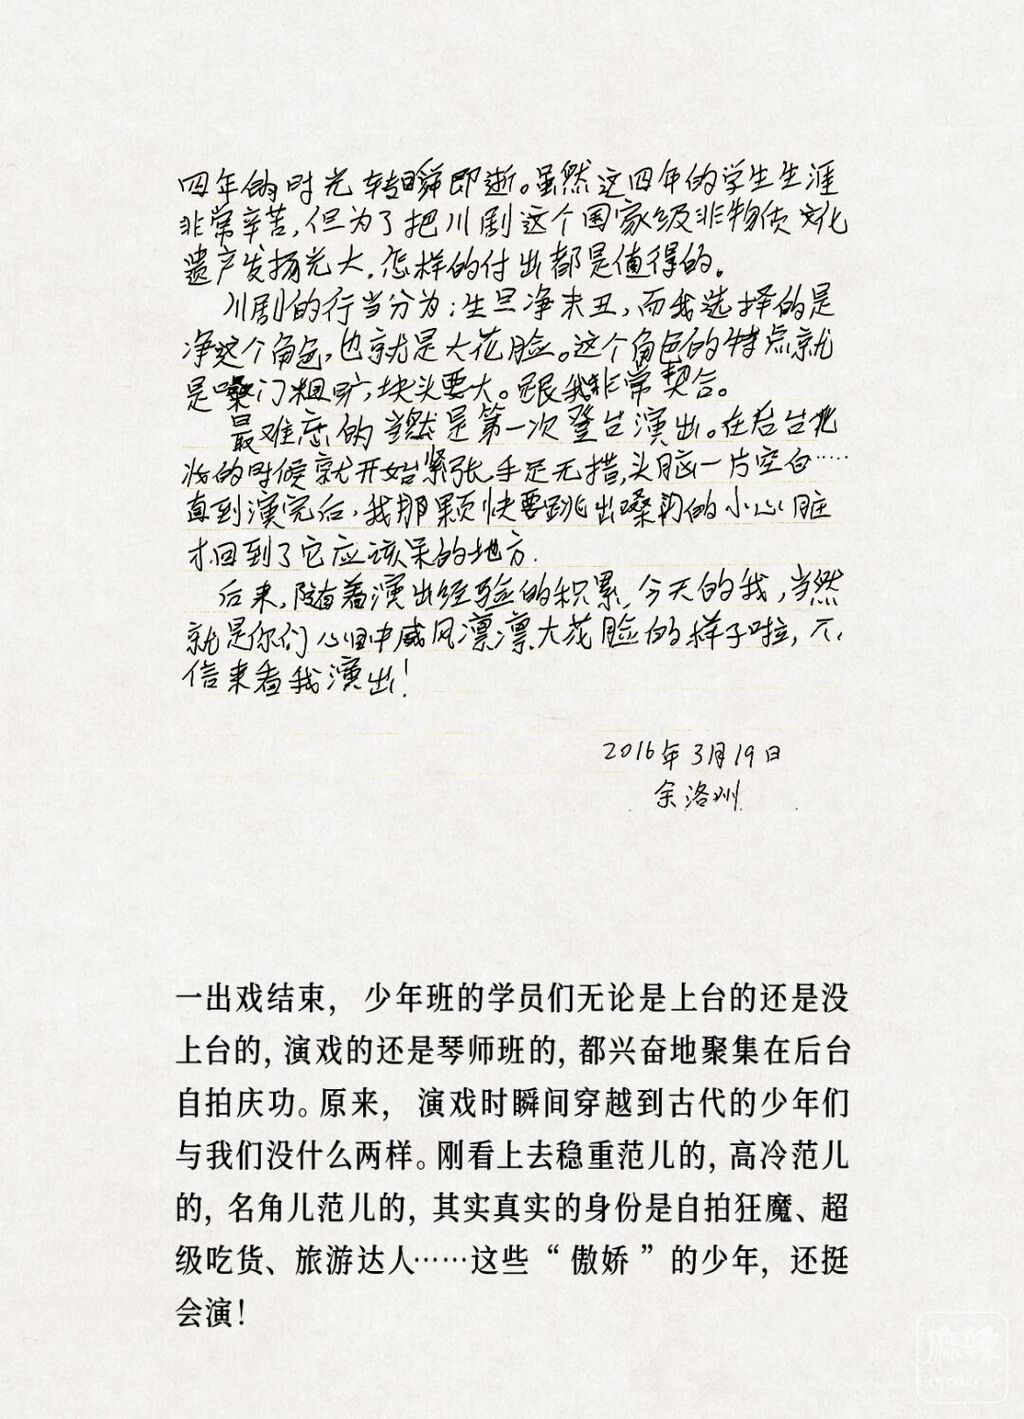 四年的时光转瞬即逝。虽然这四年的学生生涯
非常辛苦,但为了把川剧这个国家级非物质文化
遗产发扬光大,怎样的付出都是值得的。
川剧的行当分为:生旦净末丑,而我选择的是
净这个角色,也就是大花脸。这个角色的特点就
是嗓门粗旷,块头要大。跟我非常契合。
最难忘的当然是第一次登台演出。在后台化
妆的时候就开始紧张,手足无措,头脑一片空白……
直到演完后,我那颗快要跳出嗓门的小心脏
才回到了它应该呆的地方.
后来,随着演出经验的积累,今天的我,当然
就是你们心目中威风凛凛大花脸的样子啦,不
信来看我演出!
2016年3月19日
余洛州
一出戏结束, 少年班的学员们无论是上台的还是没
上台的, 演戏的还是琴师班的, 都兴奋地聚集在后台
自拍庆功。原来, 演戏时瞬间穿越到古代的少年们
与我们没什么两样。刚看上去稳重范儿的, 高冷范儿
的, 名角儿范儿的, 其实真实的身份是自拍狂魔、超
级吃货、旅游达人……这些“傲娇”的少年, 还挺
会演!
麻辣